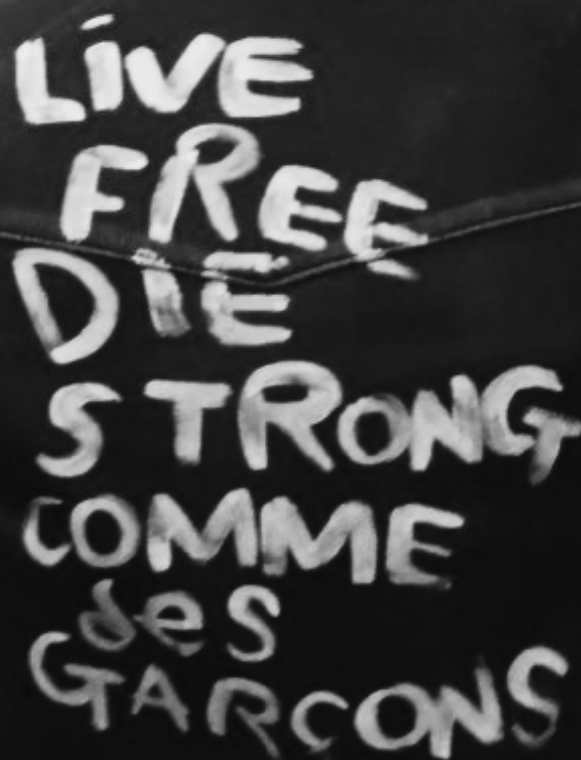 LiVE
FREE
DIE
STRONG
COMME
des
GARCONS